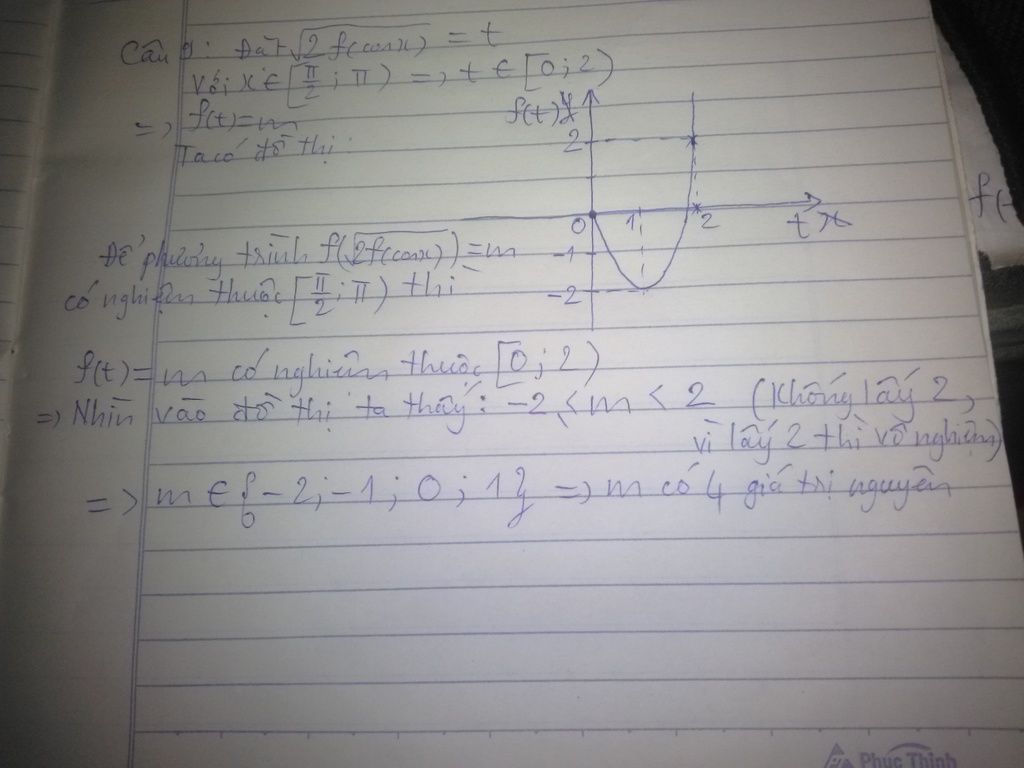 Câu 9: Đặt √2f(cosx) = t
Với x ∈ [π/2; π) => t ∈ [0; 2)
=> f(t) = m
Ta có đồ thị:
f(t) y
2
0 1 2 t x
-1
-2
Để phương trình f(√2f(cosx)) = m
có nghiệm thuộc [π/2; π) thì
f(t) = m có nghiệm thuộc [0; 2)
=> Nhìn vào đồ thị ta thấy: -2 ≤ m < 2 (Không lấy 2,
vì lấy 2 thì vô nghiệm)
=> m ∈ {-2; -1; 0; 1} => m có 4 giá trị nguyên
Phúc Thịnh